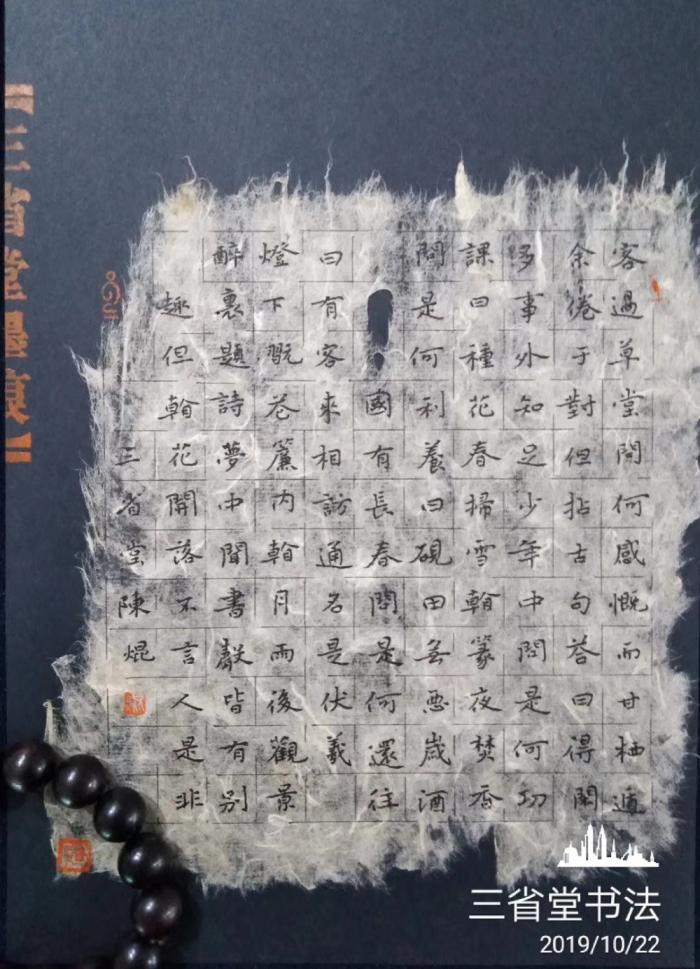 客過草堂問何感慨而甘栖遁
余倦于對但拈古句答曰得閑
多事外知足少年中問是何功
課曰種花春掃雪看篆夜焚香
問是何利養曰硯田無惡歲酒
國有長春問是何還往
曰有客來相訪通名是伏羲
燈下翫花簾內看月雨後觀景
醉裏題詩夢中聞書聲皆有别
趣但看花開落不言人是非
三省堂陳焜
【三省堂墨痕】
三省堂书法
2019/10/22